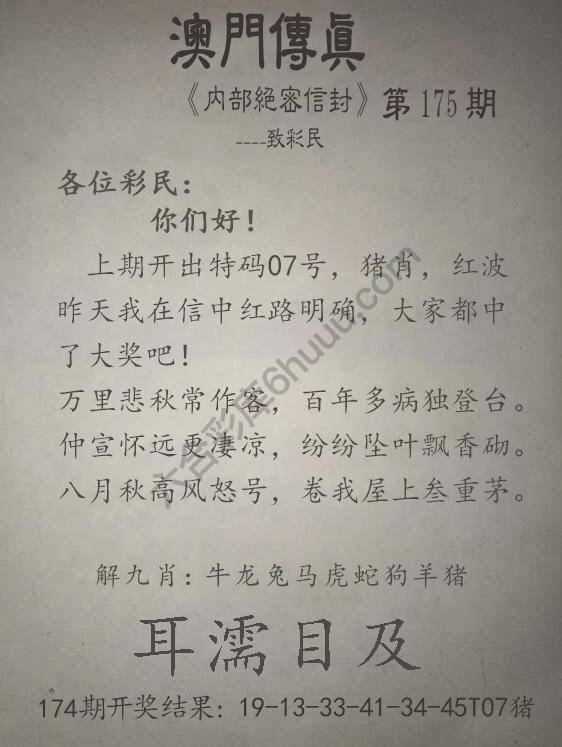 澳門傳真
《内部絕密信封》第175期
----致彩民
各位彩民：
你们好！
上期开出特码07号，猪肖，红波
昨天我在信中红路明确，大家都中
了大奖吧！
万里悲秋常作客，百年多病独登台。
仲宣怀远更凄凉，纷纷坠叶飘香砌。
八月秋高风怒号，卷我屋上叁重茅。
解九肖：牛龙兔马虎蛇狗羊猪
耳濡目及
174期开奖结果：19-13-33-41-34-45T07猪
六合彩库6huuu.com